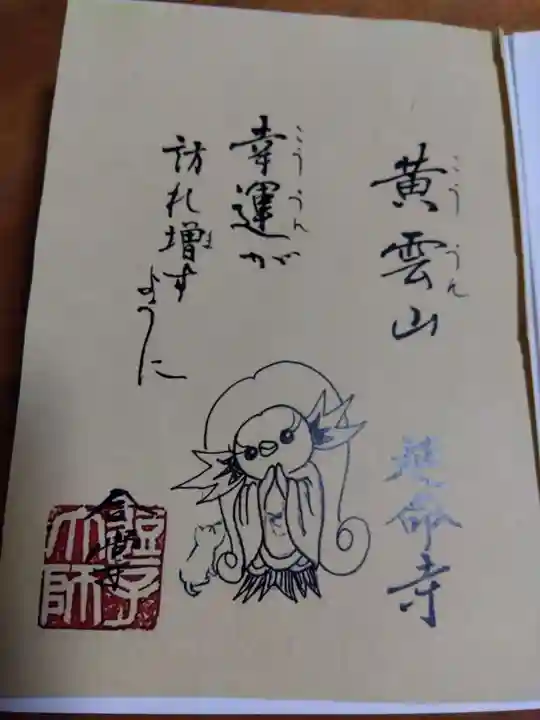 こううん
黄雲山
延命寺
こううん
幸運が
訪れ増す
ま
ように
合掌
大師